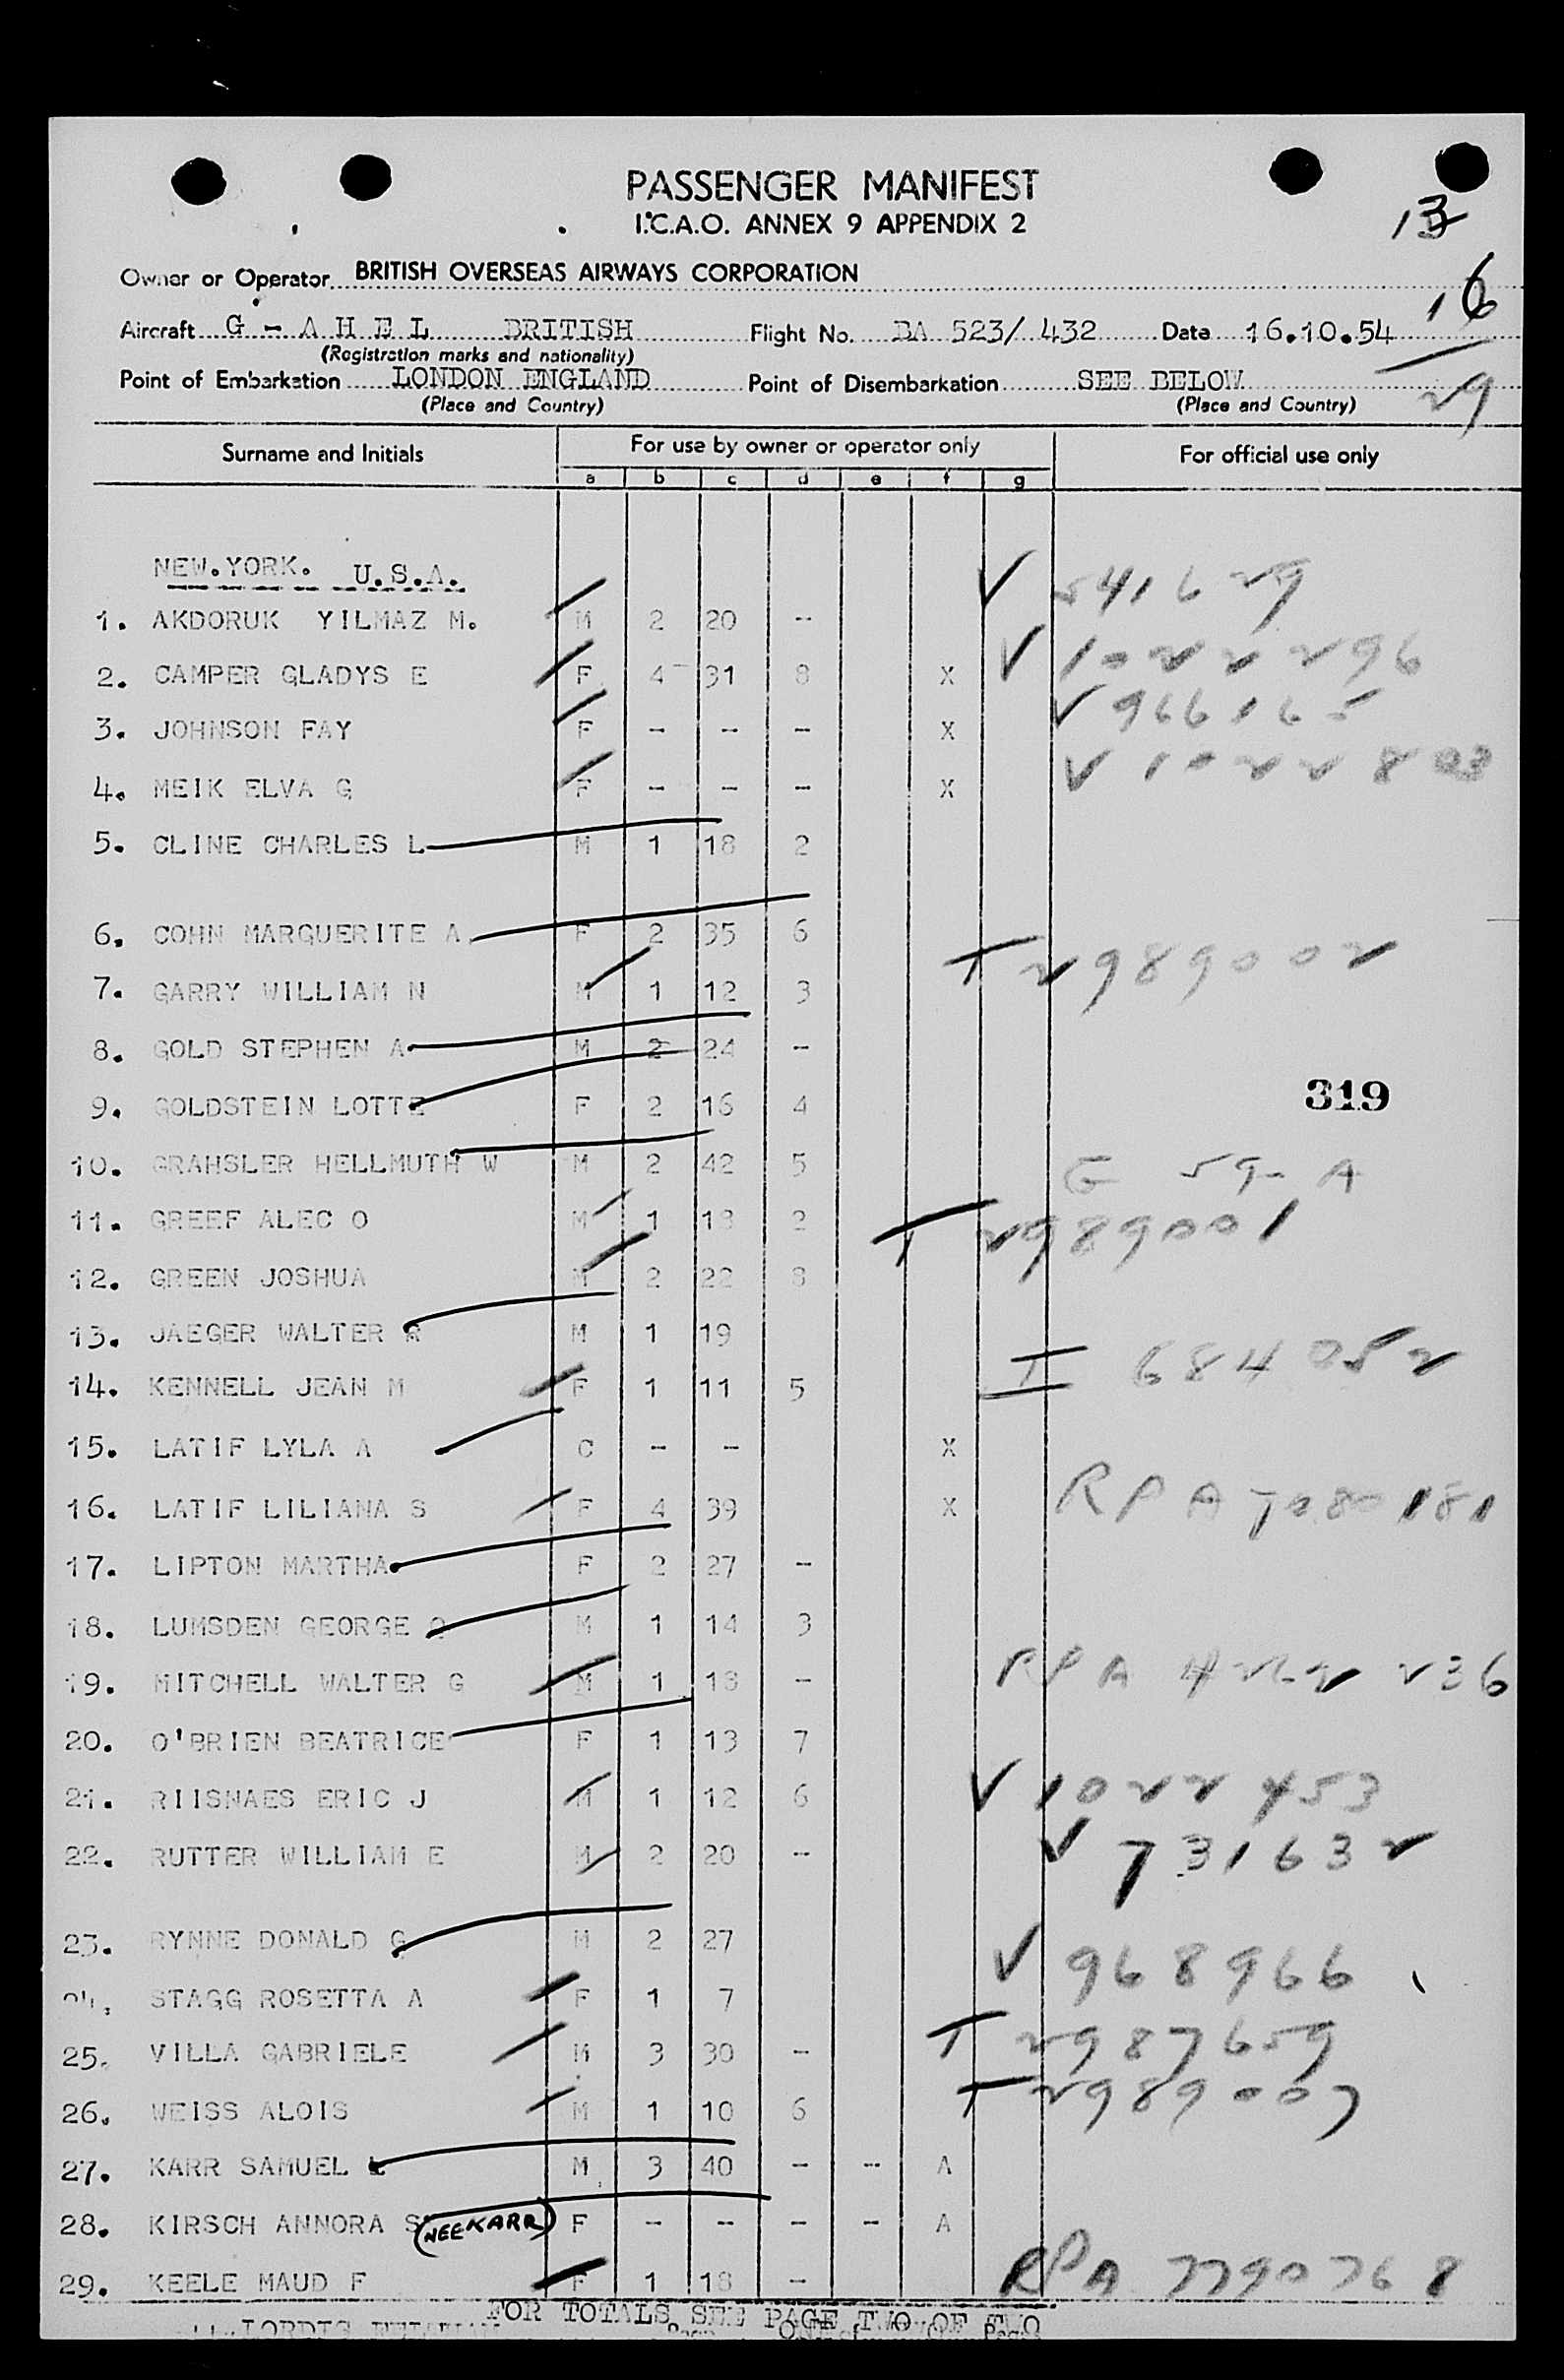 PASSENGER MANIFEST
I.C.A.O. ANNEX 9 APPENDIX 2
13
Owner or Operator BRITISH OVERSEAS AIRWAYS CORPORATION
16
Aircraft G - A H E L BRITISH Flight No. BA 523/ 432 Date 16.10.54
(Registration marks and nationality)
Point of Embarkation LONDON ENGLAND Point of Disembarkation SEE BELOW
(Place and Country) (Place and Country)
29
Surname and Initials For use by owner or operator only For official use only
a b c d e f g
NEW.YORK. U.S.A. V 541629
1. AKDORUK YILMAZ M. M 2 20 -
V 1022296
2. CAMPER GLADYS E F 4 31 8 X
V 966165
3. JOHNSON FAY F - - - X
V 1022803
4. MEIK ELVA G F - - - X
5. CLINE CHARLES L M 1 18 2
6. COHN MARGUERITE A. F 2 35 6
T 2989002
7. GARRY WILLIAM N M 1 12 3
8. GOLD STEPHEN A M 2 24 -
319
9. GOLDSTEIN LOTTE F 2 16 4
10. GRAHSLER HELLMUTH W M 2 42 5
G 59- A
11. GREEF ALEC O M 1 18 2
T 2989001
12. GREEN JOSHUA M 2 22 8
13. JAEGER WALTER R M 1 19
I 684052
14. KENNELL JEAN M F 1 11 5
15. LATIF LYLA A C - - X
16. LATIF LILIANA S F 4 39 X RPA
17. LIPTON MARTHA F 2 27 -
18. LUMSDEN GEORGE M 1 14 3
19. MITCHELL WALTER G M 1 18 - RPA 236
20. O'BRIEN BEATRICE F 1 13 7
21. RIISNAES ERIC J M 1 12 6 V 1022453
22. RUTTER WILLIAM E M 2 20 - V 731632
23. RYNNE DONALD G M 2 27
V 968966
24. STAGG ROSETTA A F 1 7
25. VILLA GABRIELE M 3 30 - T 2987659
26. WEISS ALOIS M 1 10 6 T 2989007
27. KARR SAMUEL L M 3 40 - - A
28. KIRSCH ANNORA S (NEE KARR) F - - - - A
29. KEELE MAUD F F 1 18 - RPA 7790768
FOR TOTALS SEE PAGE TWO OF TWO